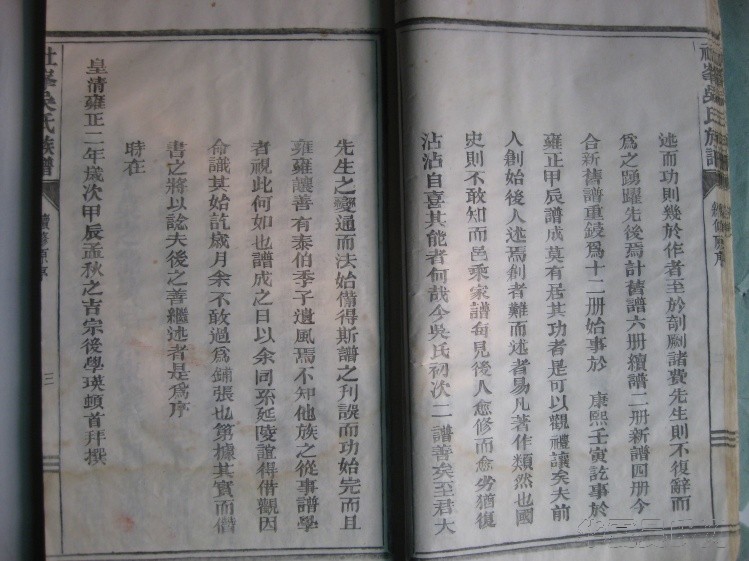 社峯吳氏族譜
述而功則幾於作者至於剞劂諸費先生則不復辭而
爲之踴躍先後焉計舊譜六册續譜二册新譜四册今
合新舊譜重鋟爲十二册始事於 康熙壬寅訖事於
雍正甲辰譜成莫有居其功者是可以觀禮讓矣夫前
人創始後人述焉創者難而述者易凡著作類然也國
史則不敢知而邑乘家譜每見後人愈修而愈劣猶復
沾沾自喜其能者何哉今吳氏初次二譜善矣至君大
先生之變通而法始備得斯譜之刋誤而功始完而且
雍雍讓善有泰伯季子遺風焉不知他族之從事譜學
者視此何如也譜成之日以余同孫延陵誼得借觀因
命識其始訖歲月余不敢過爲鋪張也第據其實而僭
書之將以諗夫後之善繼述者是爲序
時在
皇清雍正二年歲次甲辰孟秋之吉宗後學瑛頓首拜撰
社峯吳氏族譜
續修原序
三